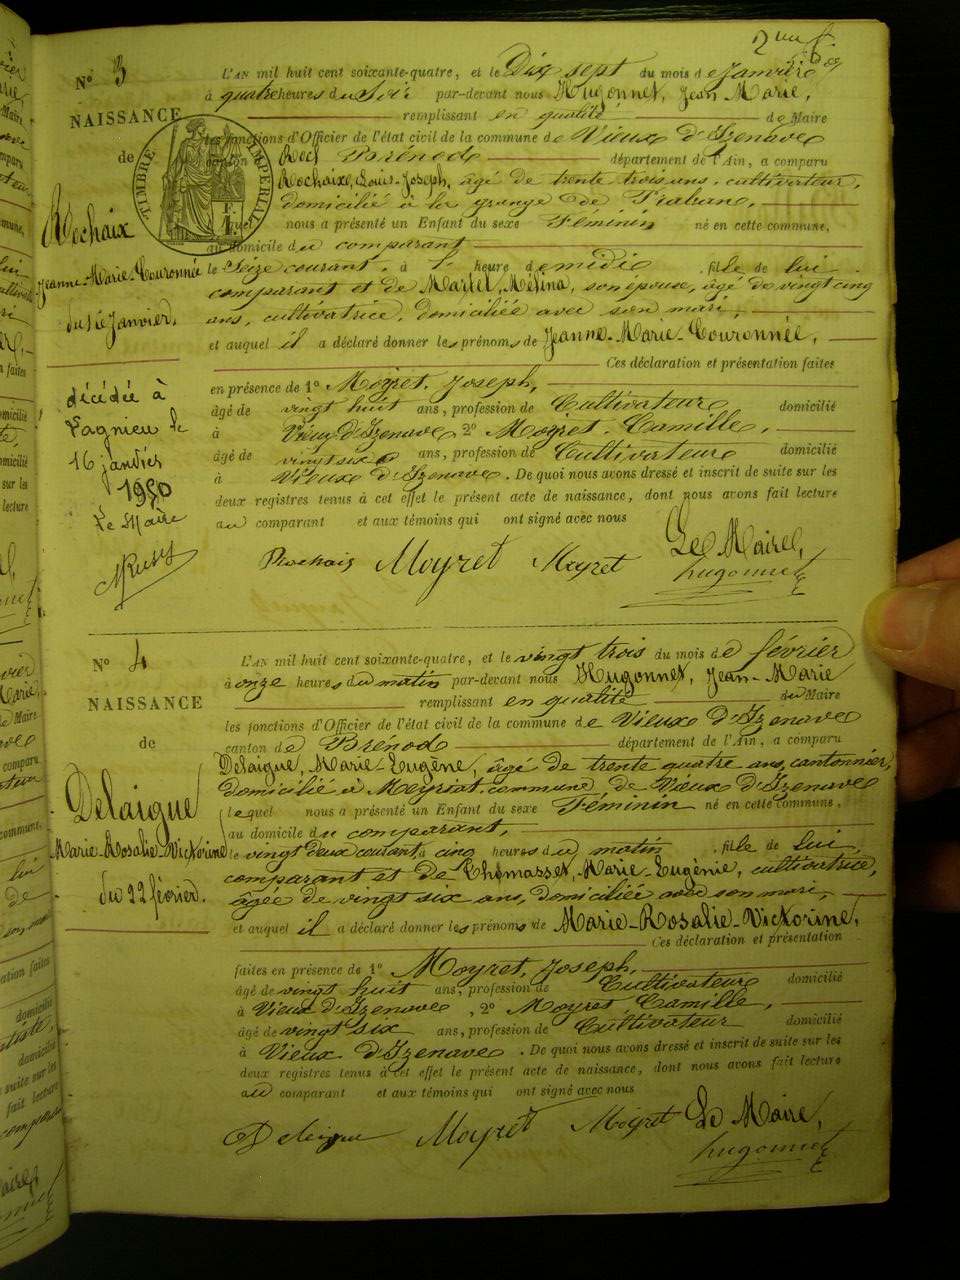 2me f
N° 3
L'AN mil huit cent soixante-quatre, et le Dix sept du mois de Janvier
à quatre heures du Soir par-devant nous Hugonnet, Jean Marie,
NAISSANCE
remplissant en qualité de Maire
les fonctions d'Officier de l'état civil de la commune de Vieux d'Izenave
de
canton Brénode département de l'Ain, a comparu
TIMBRE IMPERIAL
Rochaix, Louis-Joseph, âgé de trente trois ans, cultivateur,
domicilié à la grange de
lequel nous a présenté un Enfant du sexe Féminin né en cette commune,
Rochaix
au domicile du comparant
Jeanne-Marie-Couronnée
le Seize courant, à heure de midi, fille de lui
comparant et de Martel, Mélina, son épouse, âgé de vingt cinq
du 16 Janvier,
ans, cultivatrice, domiciliée avec son mari,
et auquel il a déclaré donner les prénoms de Jeanne-Marie-Couronnée,
Ces déclaration et présentation faites
en présence de 1° Moyret, Joseph,
décédée à
Lagnieu le
16 janvier
1950
Le Maire
âgé de vingt huit ans, profession de Cultivateur domicilié
à Vieux d'Izenave 2° Moyret, Camille,
âgé de vingt six ans, profession de Cultivateur domicilié
à Vieux d'Izenave. De quoi nous avons dressé et inscrit de suite sur les
deux registres tenus à cet effet le présent acte de naissance, dont nous avons fait lecture
au comparant et aux témoins qui ont signé avec nous
Le Maire,
Rochaix Moyret Moyret hugonnet
N° 4
L'AN mil huit cent soixante-quatre, et le vingt trois du mois de février
à onze heures du matin par-devant nous Hugonnet, Jean-Marie
NAISSANCE
remplissant en qualité du Maire
les fonctions d'Officier de l'état civil de la commune de Vieux d'Izenave
de
canton de Brénode département de l'Ain, a comparu
Delaigue, Marie-Eugène, âgé de trente quatre ans, cantonnier,
domicilié à Meyriat commune de Vieux d'Izenave
Delaigue
lequel nous a présenté un Enfant du sexe Féminin né en cette commune,
au domicile du comparant,
Marie-Rosalie-Victorine
le vingt deux courant, à cinq heures du matin, fille de lui,
comparant et de Thomasset, Marie-Eugénie, cultivatrice,
du 22 février.
âgée de vingt six ans, domiciliée avec son mari,
et auquel il a déclaré donner les prénoms de Marie-Rosalie-Victorine,
Ces déclaration et présentation
faites en présence de 1° Moyret, Joseph,
âgé de vingt huit ans, profession de Cultivateur domicilié
à Vieux d'Izenave, 2° Moyret, Camille,
âgé de vingt six ans, profession de Cultivateur domicilié
à Vieux d'Izenave. De quoi nous avons dressé et inscrit de suite sur les
deux registres tenus à cet effet le présent acte de naissance, dont nous avons fait lecture
au comparant et aux témoins qui ont signé avec nous
Le Maire,
Delaigue Moyret Moyret hugonnet